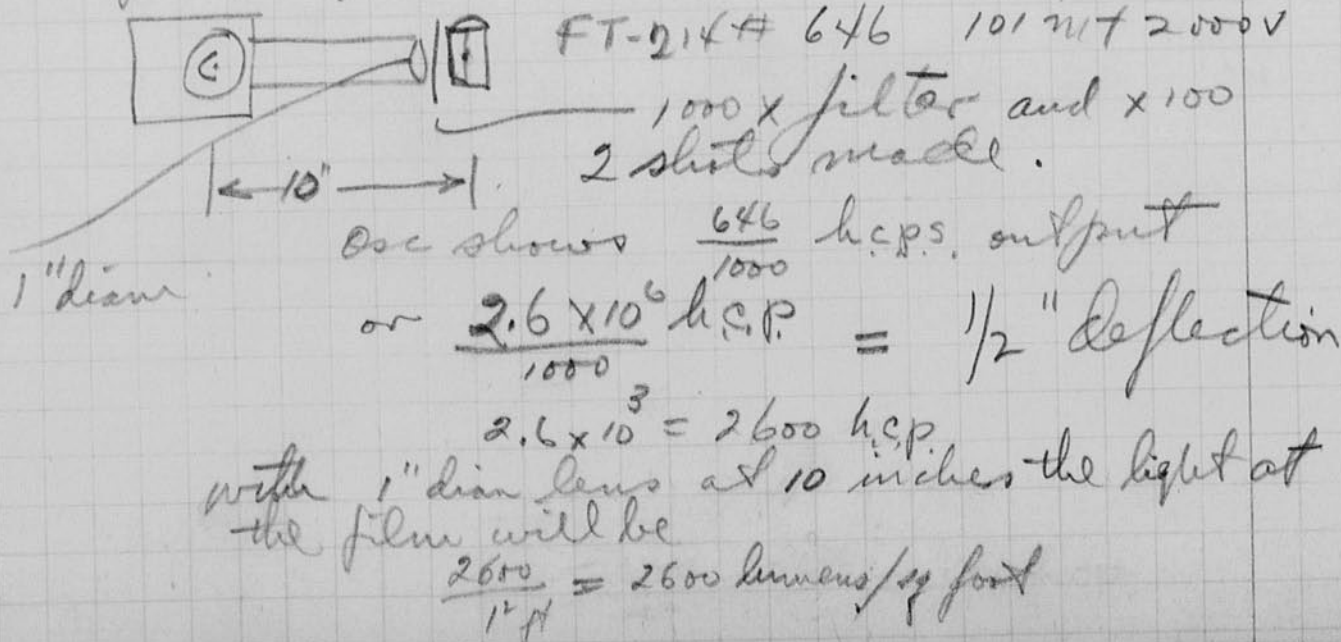 FT-214# 646 101 mf 2000V
1000 x filter and x100
2 shots made.
10"
1" diam
Osc shows 646/1000 h.c.p.s. output
or 2.6 x 10^6 h.c.p. / 1000 = 1/2" deflection
2.6 x 10^3 = 2600 h.c.p.
with 1" diam lens at 10 inches the light at
the film will be
2600/1² ft = 2600 lumens/sq foot